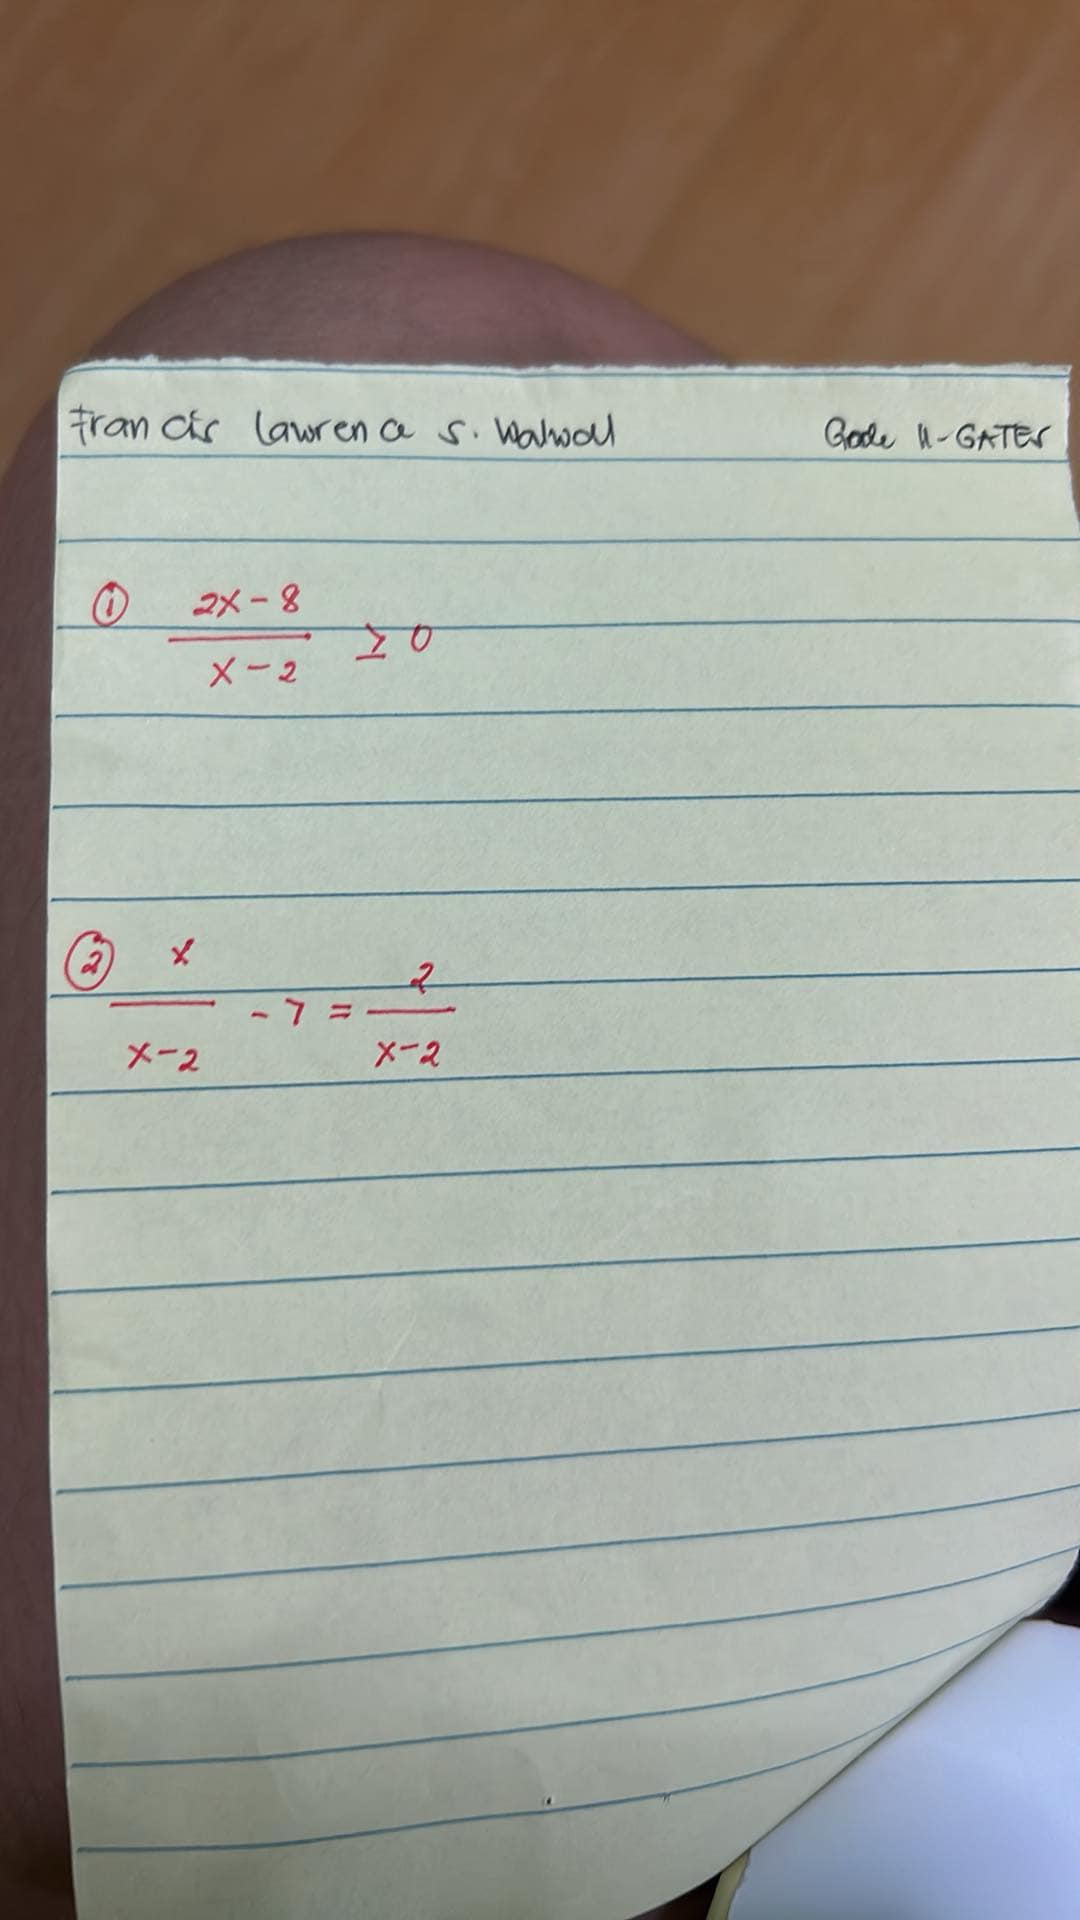 Francis Lawrence S. Walwal Grade 11-GATES
① 2x-8
x-2 ≥ 0
② x
x-2 - 7 = 2
x-2